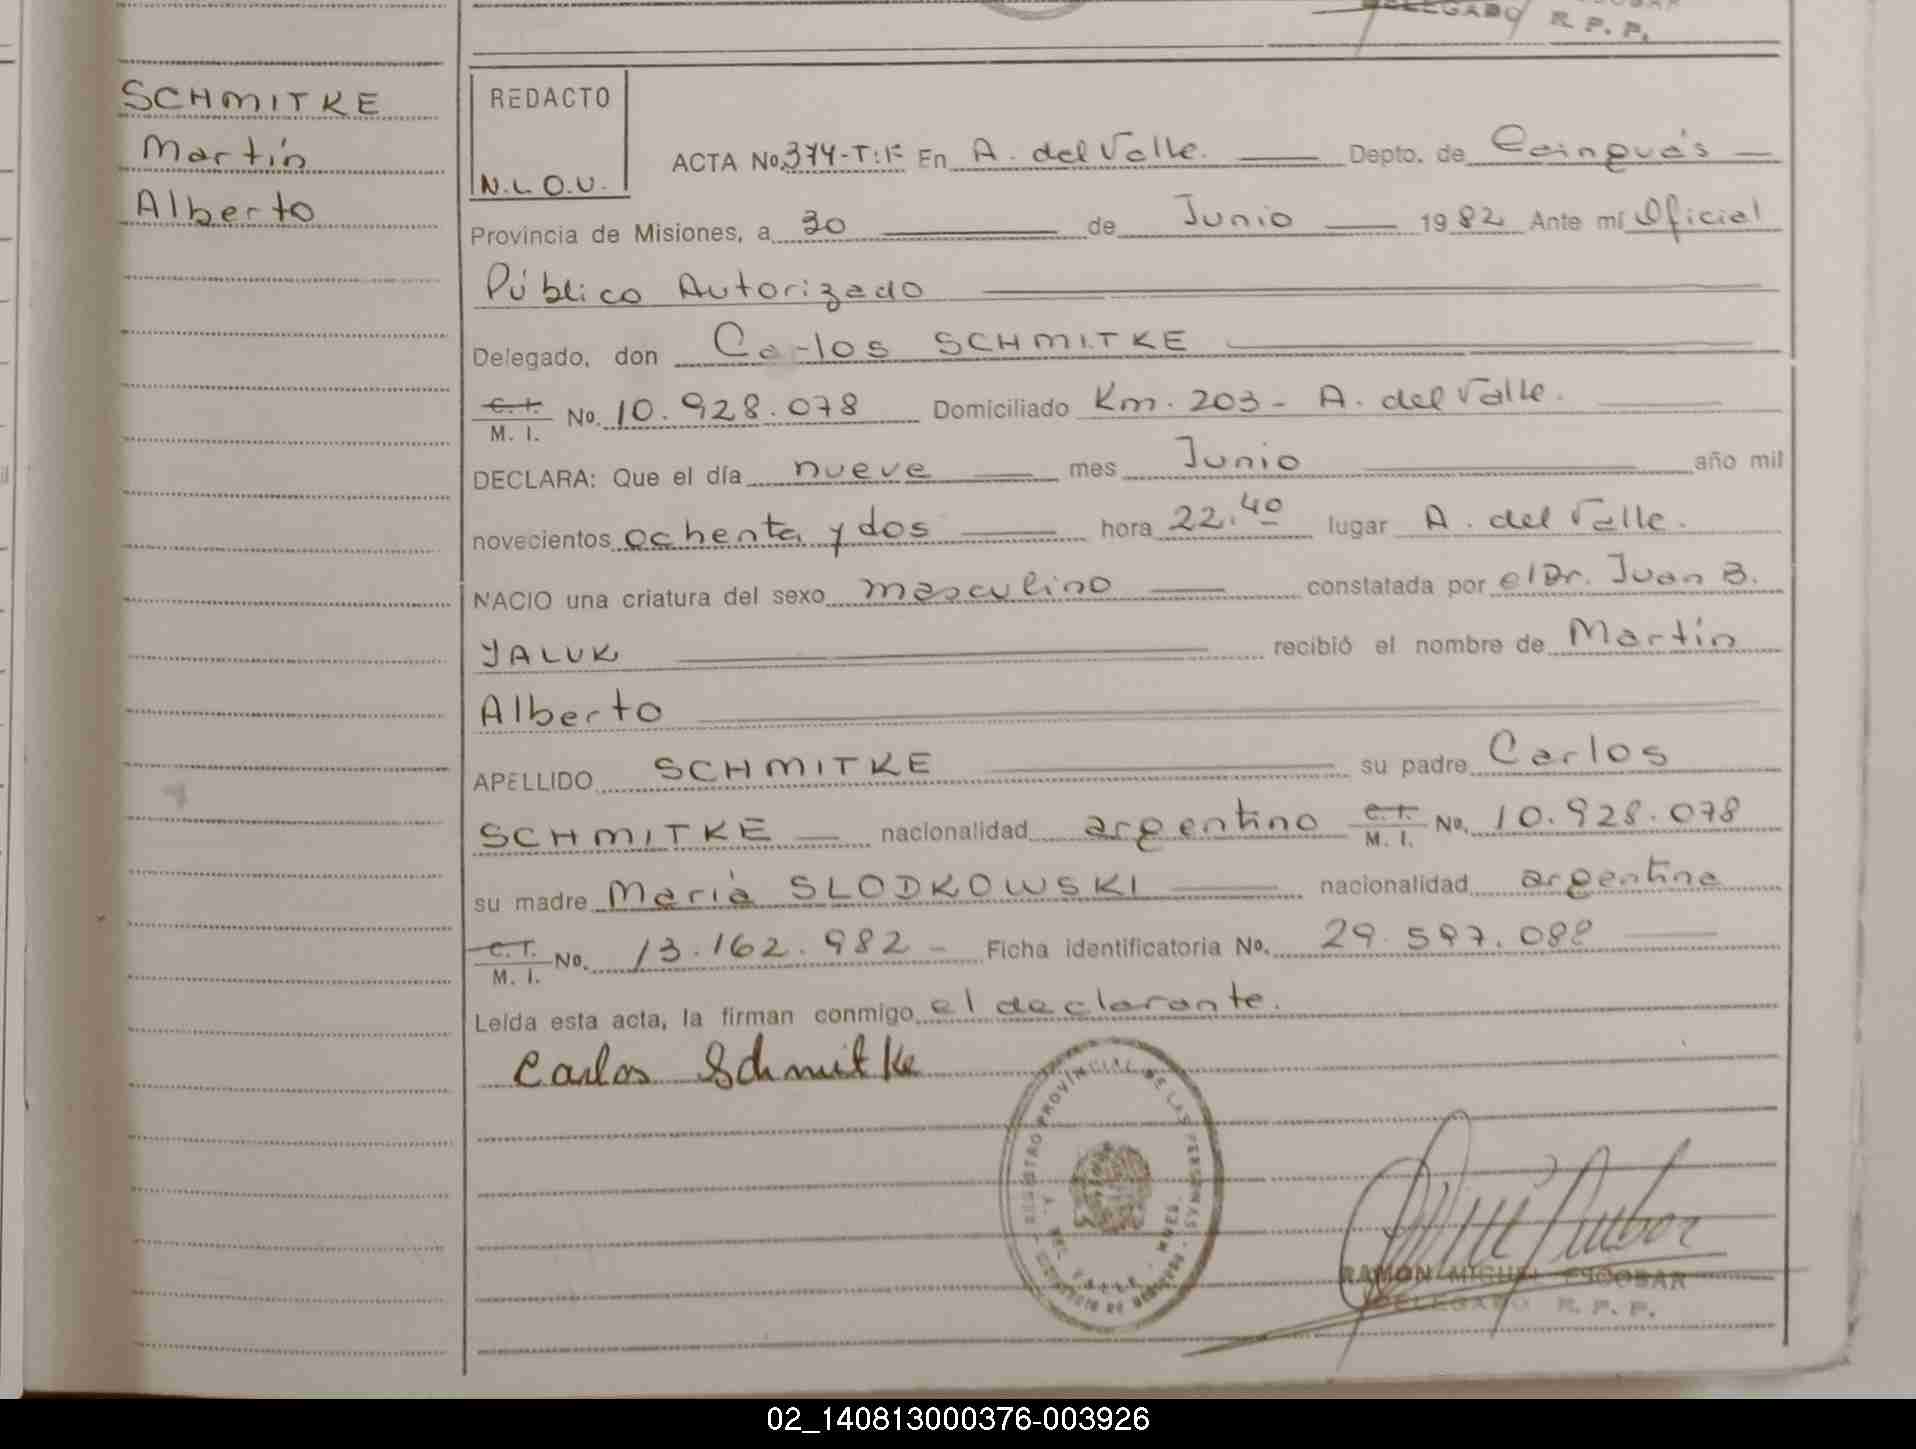 DELEGADO R. P. P.
SCHMITKE
Martín
Alberto
REDACTO
N.L.O.U.
ACTA No. 374-T:I: En A. del Valle. Depto. de Cainguás
Provincia de Misiones, a 30 de Junio 1982 Ante mí Oficial
Público Autorizado
Delegado, don Carlos SCHMITKE
C. I. M. I. No. 10.928.078 Domiciliado Km. 203- A. del Valle.
DECLARA: Que el día nueve mes Junio año mil
novecientos ochenta y dos hora 22.40 lugar A. del Valle.
NACIO una criatura del sexo masculino constatada por el Dr. Juan B.
YALUK recibió el nombre de Martín
Alberto
APELLIDO SCHMITKE su padre Carlos
SCHMITKE nacionalidad argentino C. I. M. I. No. 10.928.078
su madre María SLODKOWSKI nacionalidad argentina
C. I. M. I. No. 13.162.982 - Ficha identificatoria No. 29.597.088
Leída esta acta, la firman conmigo el declarante.
Carlos Schmitke
REGISTRO PROVINCIAL DE LAS PERSONAS
RAMON MIGUEL ESCOBAR
DELEGADO R. P. P.
02_140813000376-003926